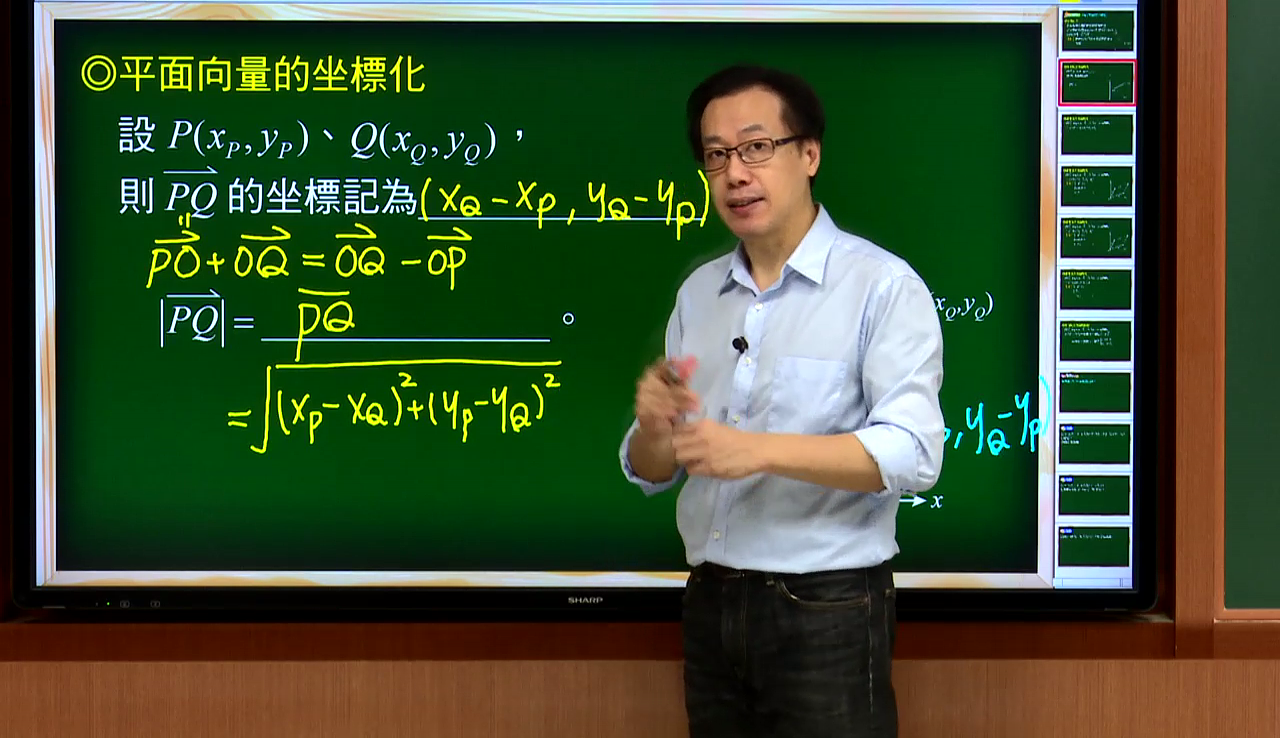 ◎平面向量的坐標化
設 P(x_P, y_P)、Q(x_Q, y_Q)，
則 \overrightarrow{PQ} 的坐標記為 (x_Q − x_P , y_Q − y_P)
\overrightarrow{PO} + \overrightarrow{OQ} = \overrightarrow{OQ} − \overrightarrow{OP}
|\overrightarrow{PQ}| = \overline{PQ} 。
= \sqrt{(x_P − x_Q)^2 + (y_P − y_Q)^2}
x_Q, y_Q)
, y_Q − y_P)
x
SHARP